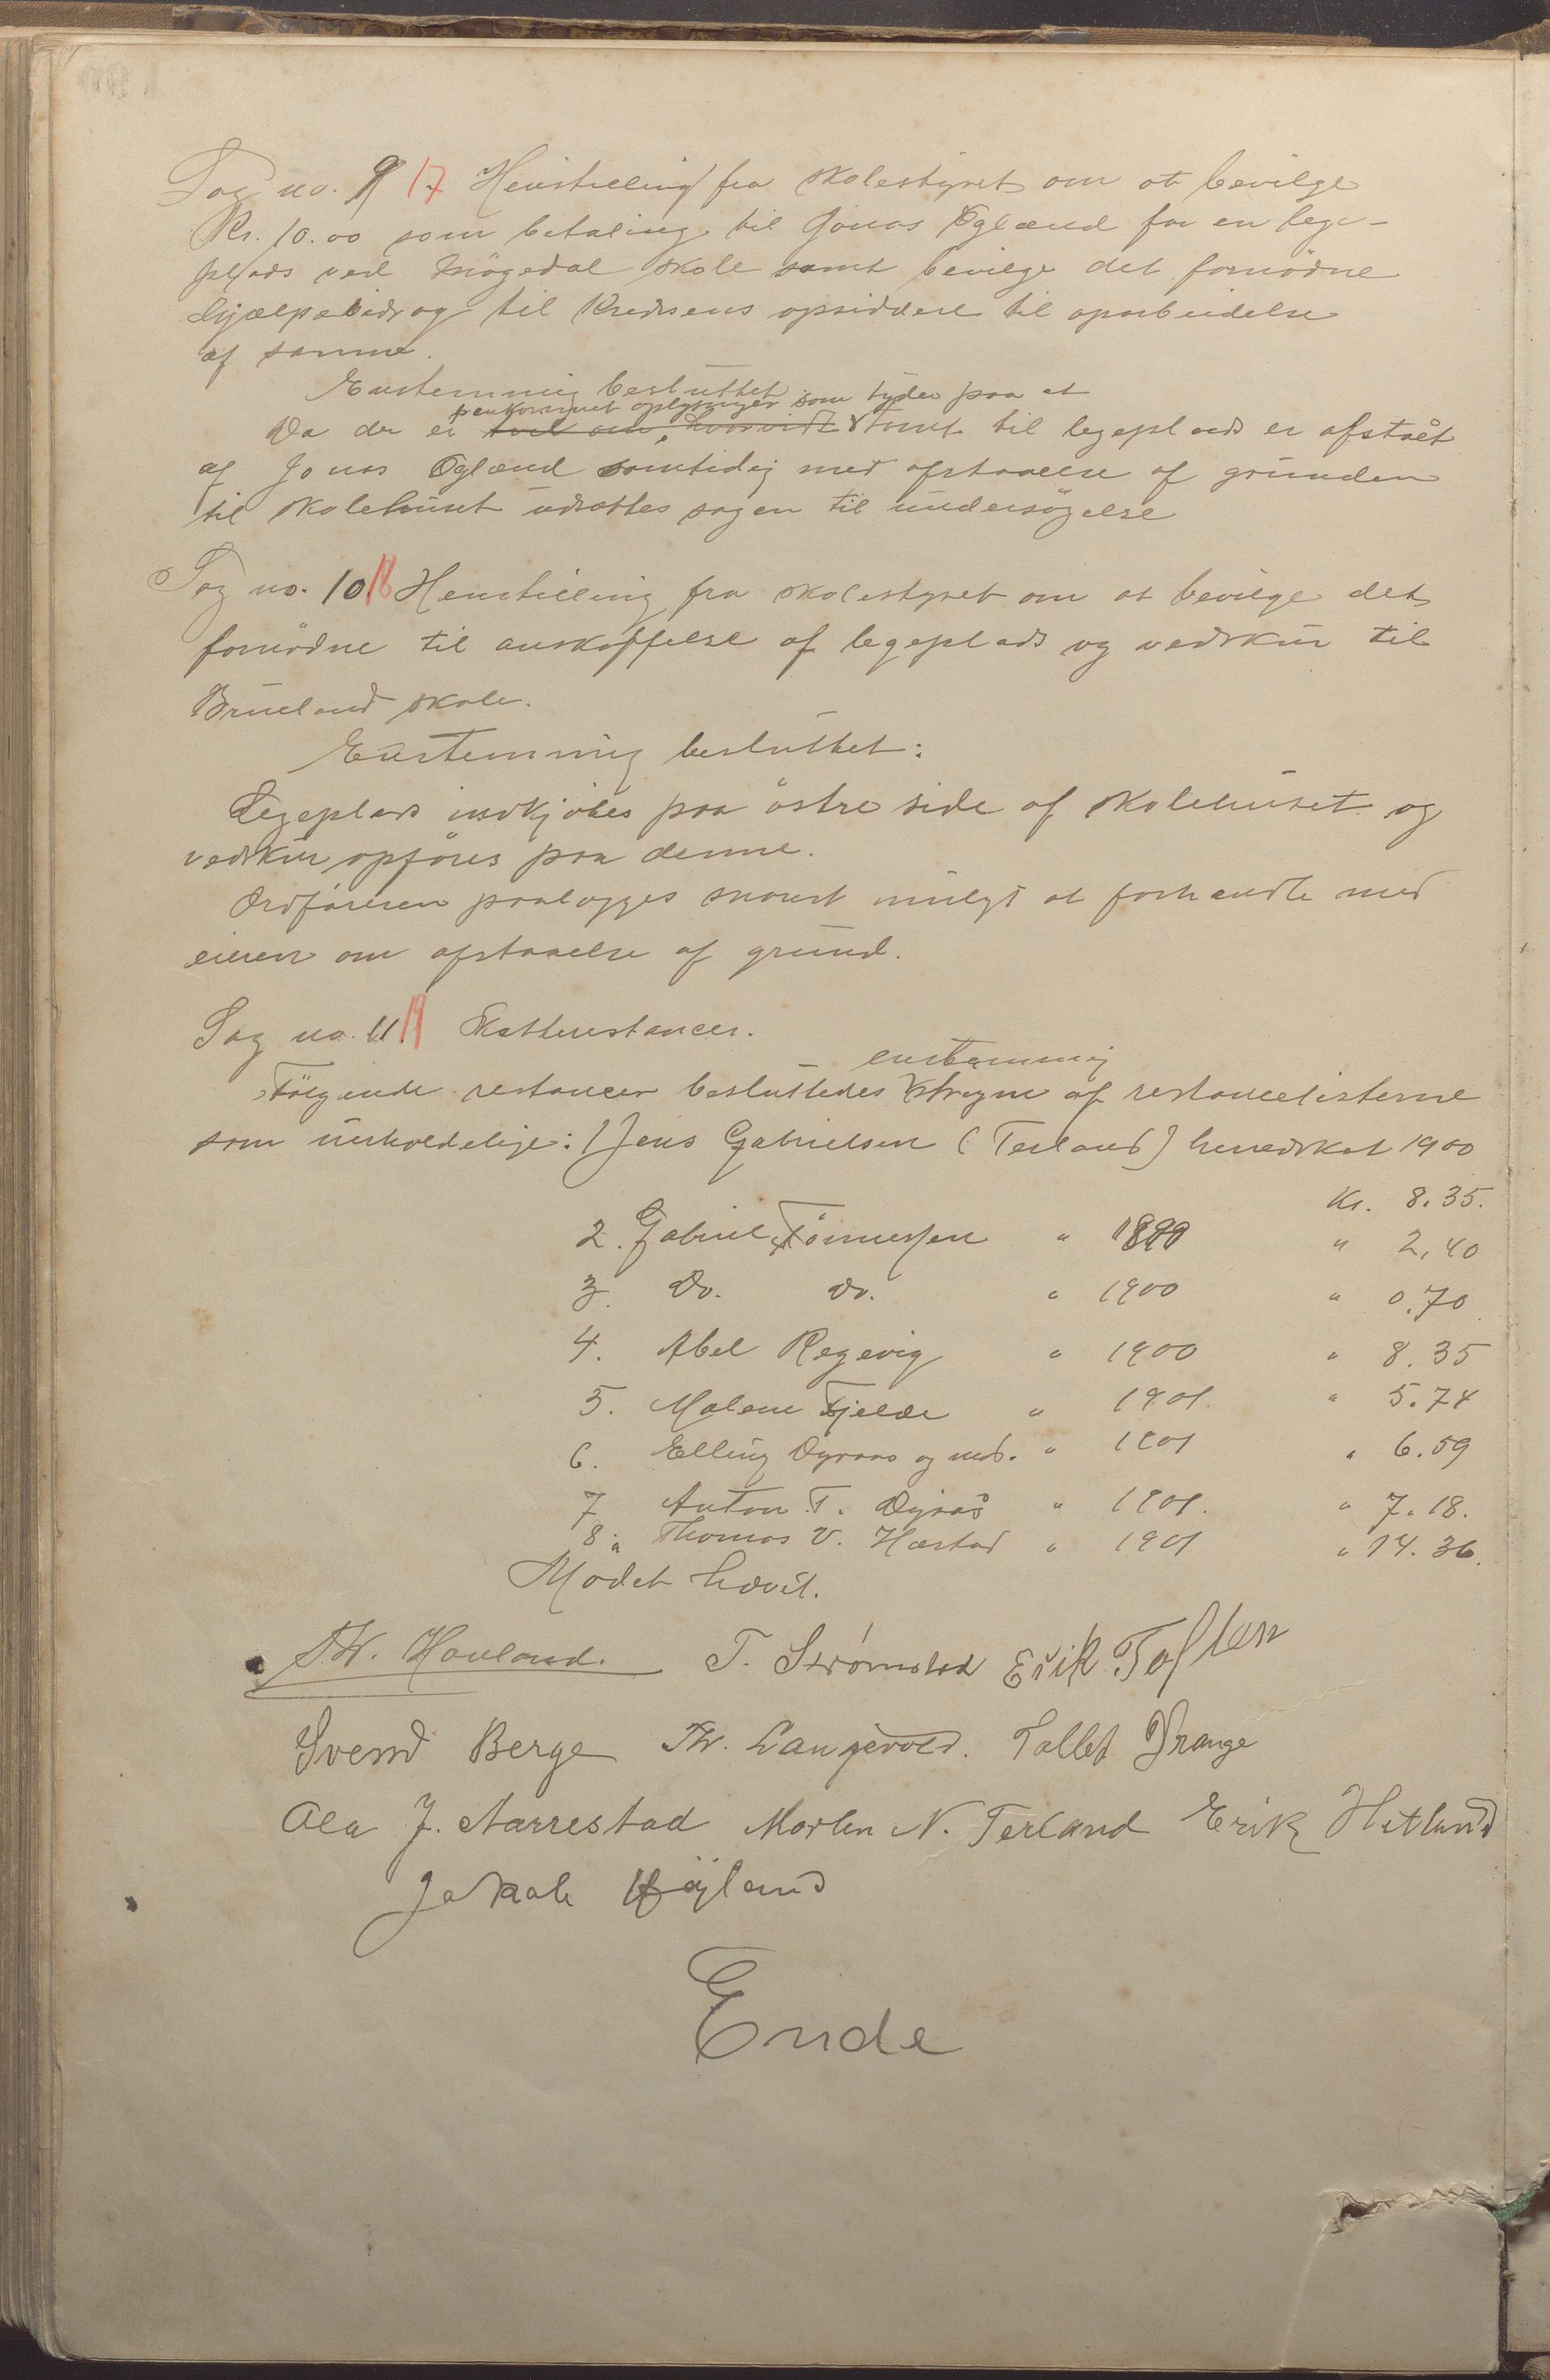 Sag no. 9 17. Henstilling fra skolestyret om at bevilge
Kr. 10.00 som betaling til Jonas Øglænd for en lege-
plads ved Møgedal skole samt bevilge det fornödne
hjælpebidrag til Kredsens opsiddere til oparbeidelse
af samme.
Enstemmig besluttet
fremkommet oplysninger som tyder paa at
Da der er tvil om, hvorvidt tomt til legeplads er afstaåt
af Jonas Øglænd samtidig med afstaaelse af grunden
til skolehuset udsættes sagen til undersögelse
Sag no. 10 18 Henstilling fra skolestyret om at bevilge det
fornödne til anskaffelse af legeplads og vedskur til
Brueland skole.
Enstemmig besluttet:
Legeplads indkjöbes paa östre side af skolehuset og
vedskur opföres paa denne.
Ordföreren paalægges snarest muligt at forhandle med
eieren om afstaaelse af grund.
Sag no. 11 19 Skatterestancer.
enstemmig
Fölgende restancer besluttedes strögne af restancelisterne
som uerholdelige: 1) Jens Gabrielsen (Terland) herredskat 1900
Kr. 8.35.
2. Gabriel Tönnessen " 1899 " 2,40
3. Do. Do. " 1900 " 0.70
4. Abel Regevig " 1900 " 8.35
5. Malene Fjelde " 1901. " 5.74
6. Elling Dyraas og " 1901 " 6.59
7 Anton T. Dyraas " 1901. " 7.18.
8. Thomas V. Hæstad " 1901 " 14.36.
Mödet hævet.
Th. Hauland. T. Strømstad Erik Toften
Svend Berge Th. Langevold. Tollet Drange
Ola J. Aarrestad Morten N. Terland Erik Hetland
Jakob Høyland
Ende